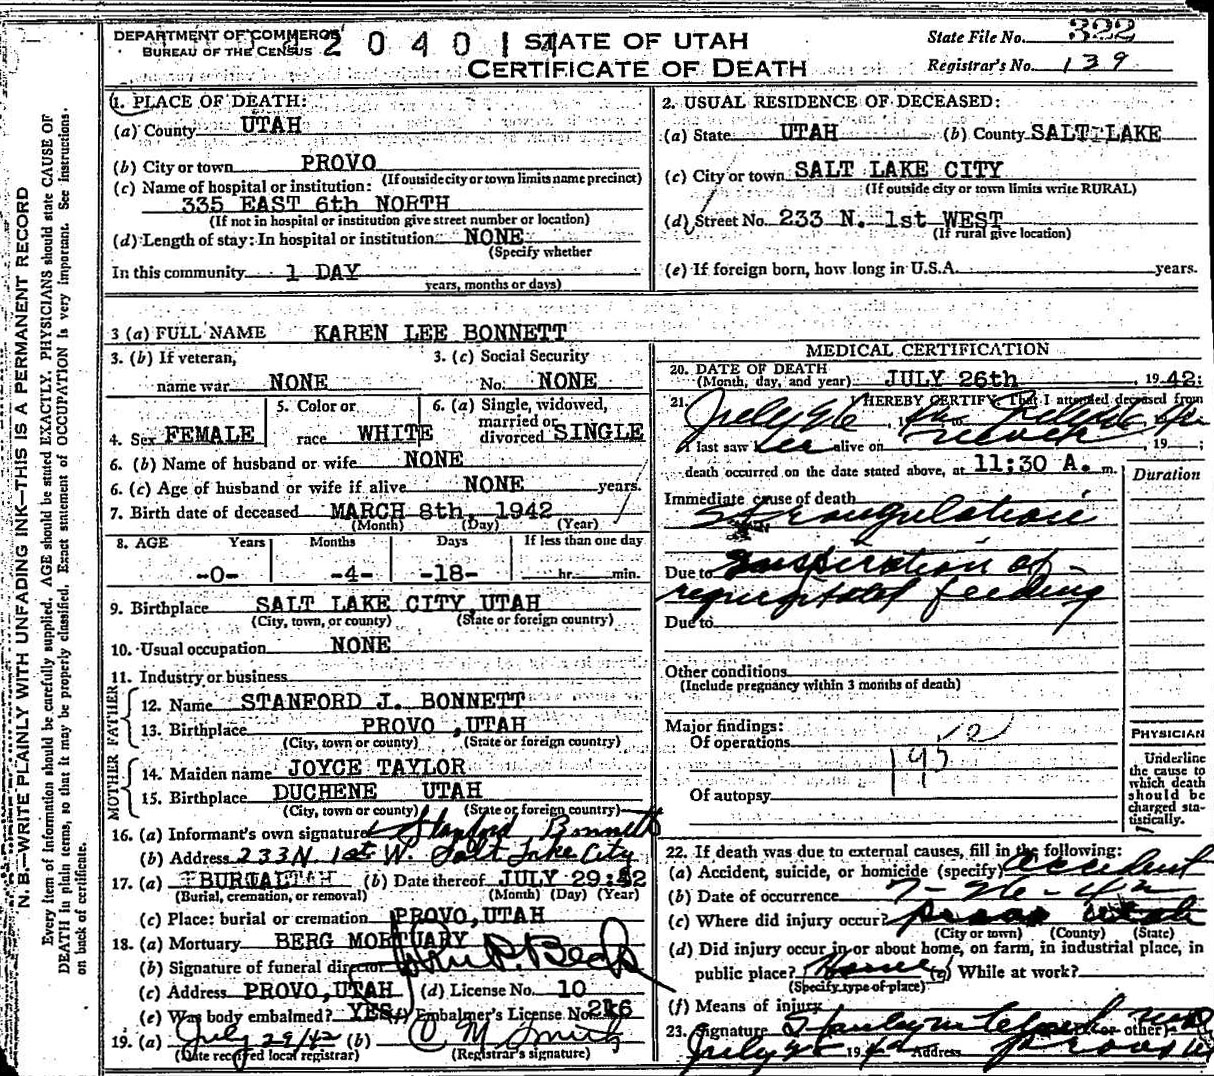 DEPARTMENT OF COMMERCE
BUREAU OF THE CENSUS
2 0 4 0 1 4
STATE OF UTAH
CERTIFICATE OF DEATH
State File No. 322
Registrar's No. 139
N. B.—WRITE PLAINLY WITH UNFADING INK—THIS IS A PERMANENT RECORD
Every item of information should be carefully supplied. AGE should be stated EXACTLY. PHYSICIANS should state CAUSE OF
DEATH in plain terms, so that it may be properly classified. Exact statement of OCCUPATION is very important. See instructions
on back of certificate.
1. PLACE OF DEATH:
(a) County UTAH
(b) City or town PROVO
(If outside city or town limits name precinct)
(c) Name of hospital or institution:
335 EAST 6th NORTH
(If not in hospital or institution give street number or location)
(d) Length of stay: In hospital or institution NONE
(Specify whether
In this community 1 DAY
years, months or days)
2. USUAL RESIDENCE OF DECEASED:
(a) State UTAH (b) County SALT LAKE
(c) City or town SALT LAKE CITY
(If outside city or town limits write RURAL)
(d) Street No. 233 N. 1st WEST
(If rural give location)
(e) If foreign born, how long in U.S.A. years.
3 (a) FULL NAME KAREN LEE BONNETT
3. (b) If veteran,
name war NONE
3. (c) Social Security
No. NONE
4. Sex FEMALE
5. Color or
race WHITE
6. (a) Single, widowed,
married or
divorced SINGLE
6. (b) Name of husband or wife NONE
6. (c) Age of husband or wife if alive NONE years.
7. Birth date of deceased MARCH 8th, 1942
(Month) (Day) (Year)
8. AGE Years Months Days If less than one day
-0- -4- -18- hr. min.
9. Birthplace SALT LAKE CITY, UTAH
(City, town, or county) (State or foreign country)
10. Usual occupation NONE
11. Industry or business
FATHER
12. Name STANFORD J. BONNETT
13. Birthplace PROVO, UTAH
(City, town or county) (State or foreign country)
MOTHER
14. Maiden name JOYCE TAYLOR
15. Birthplace DUCHENE UTAH
(City, town or county) (State or foreign country)
16. (a) Informant's own signature Stanford Bonnett
(b) Address 233 N. 1st W. Salt Lake City
17. (a) BURIAL (b) Date thereof JULY 29:42
(Burial, cremation, or removal) (Month) (Day) (Year)
(c) Place: burial or cremation PROVO, UTAH
18. (a) Mortuary BERG MORTUARY
(b) Signature of funeral director
(c) Address PROVO, UTAH (d) License No. 10
(e) Was body embalmed? YES (f) Embalmer's License No. 216
19. (a) July 29/42 (b) O M Smith
(Date received local registrar) (Registrar's signature)
MEDICAL CERTIFICATION
20. DATE OF DEATH
(Month, day, and year) JULY 26th, 1942:
21. I HEREBY CERTIFY, That I attended deceased from
July 26
I last saw her alive on never 19 ;
death occurred on the date stated above, at 11:30 A. m.
Duration
Immediate cause of death
Strangulation
Due to aspiration of
regurgitated feeding
Due to
Other conditions
(Include pregnancy within 3 months of death)
Major findings:
Of operations
Of autopsy
PHYSICIAN
Underline
the cause to
which death
should be
charged sta-
tistically.
22. If death was due to external causes, fill in the following:
(a) Accident, suicide, or homicide (specify) accident
(b) Date of occurrence 7-26-42
(c) Where did injury occur? Provo Utah
(City or town) (County) (State)
(d) Did injury occur in or about home, on farm, in industrial place, in
public place? Home (e) While at work?
(Specify type of place)
(f) Means of injury
23. Signature (M. D. or other)
July 1942 Address Provo